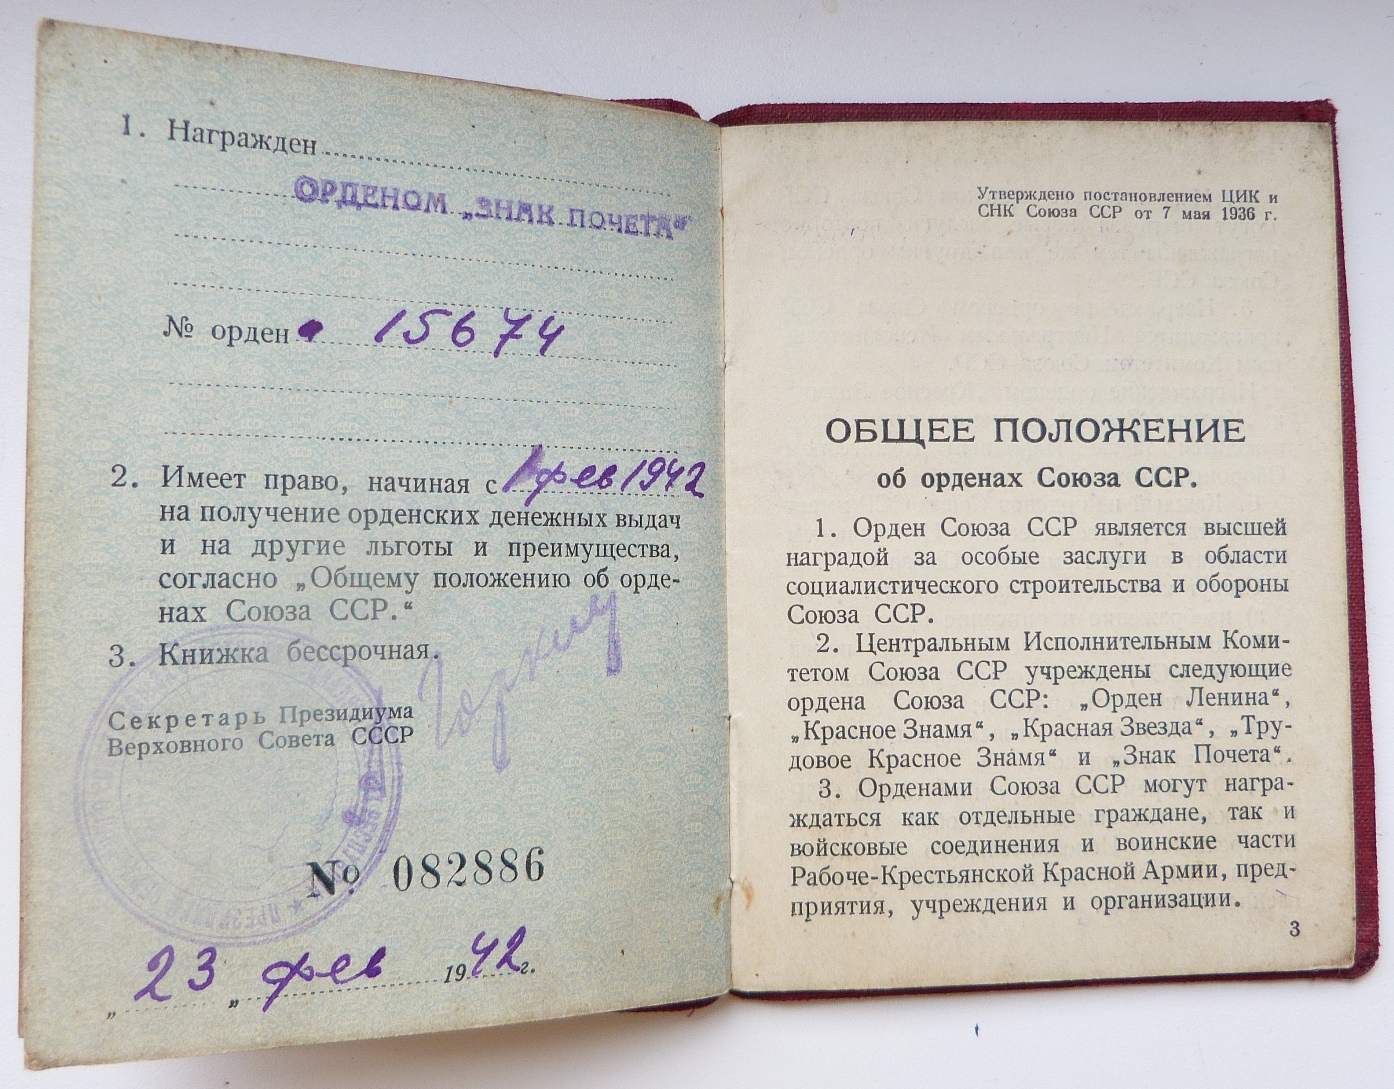 1. Награжден
ОРДЕНОМ „ЗНАК ПОЧЕТА“
№ орден а 15674
2. Имеет право, начиная с 1 фев 1942
на получение орденских денежных выдач
и на другие льготы и преимущества,
согласно „Общему положению об орде-
нах Союза ССР.“
3. Книжка бессрочная.
Горкин
Секретарь Президиума
Верховного Совета СССР
№ 082886
„ 23 „ фев 1942 г.
Утверждено постановлением ЦИК и
СНК Союза ССР от 7 мая 1936 г.
ОБЩЕЕ ПОЛОЖЕНИЕ
об орденах Союза ССР.
1. Орден Союза ССР является высшей
наградой за особые заслуги в области
социалистического строительства и обороны
Союза ССР.
2. Центральным Исполнительным Коми-
тетом Союза ССР учреждены следующие
ордена Союза ССР: „Орден Ленина“,
„Красное Знамя“, „Красная Звезда“, „Тру-
довое Красное Знамя“ и „Знак Почета“.
3. Орденами Союза ССР могут награ-
ждаться как отдельные граждане, так и
войсковые соединения и воинские части
Рабоче-Крестьянской Красной Армии, пред-
приятия, учреждения и организации.
3